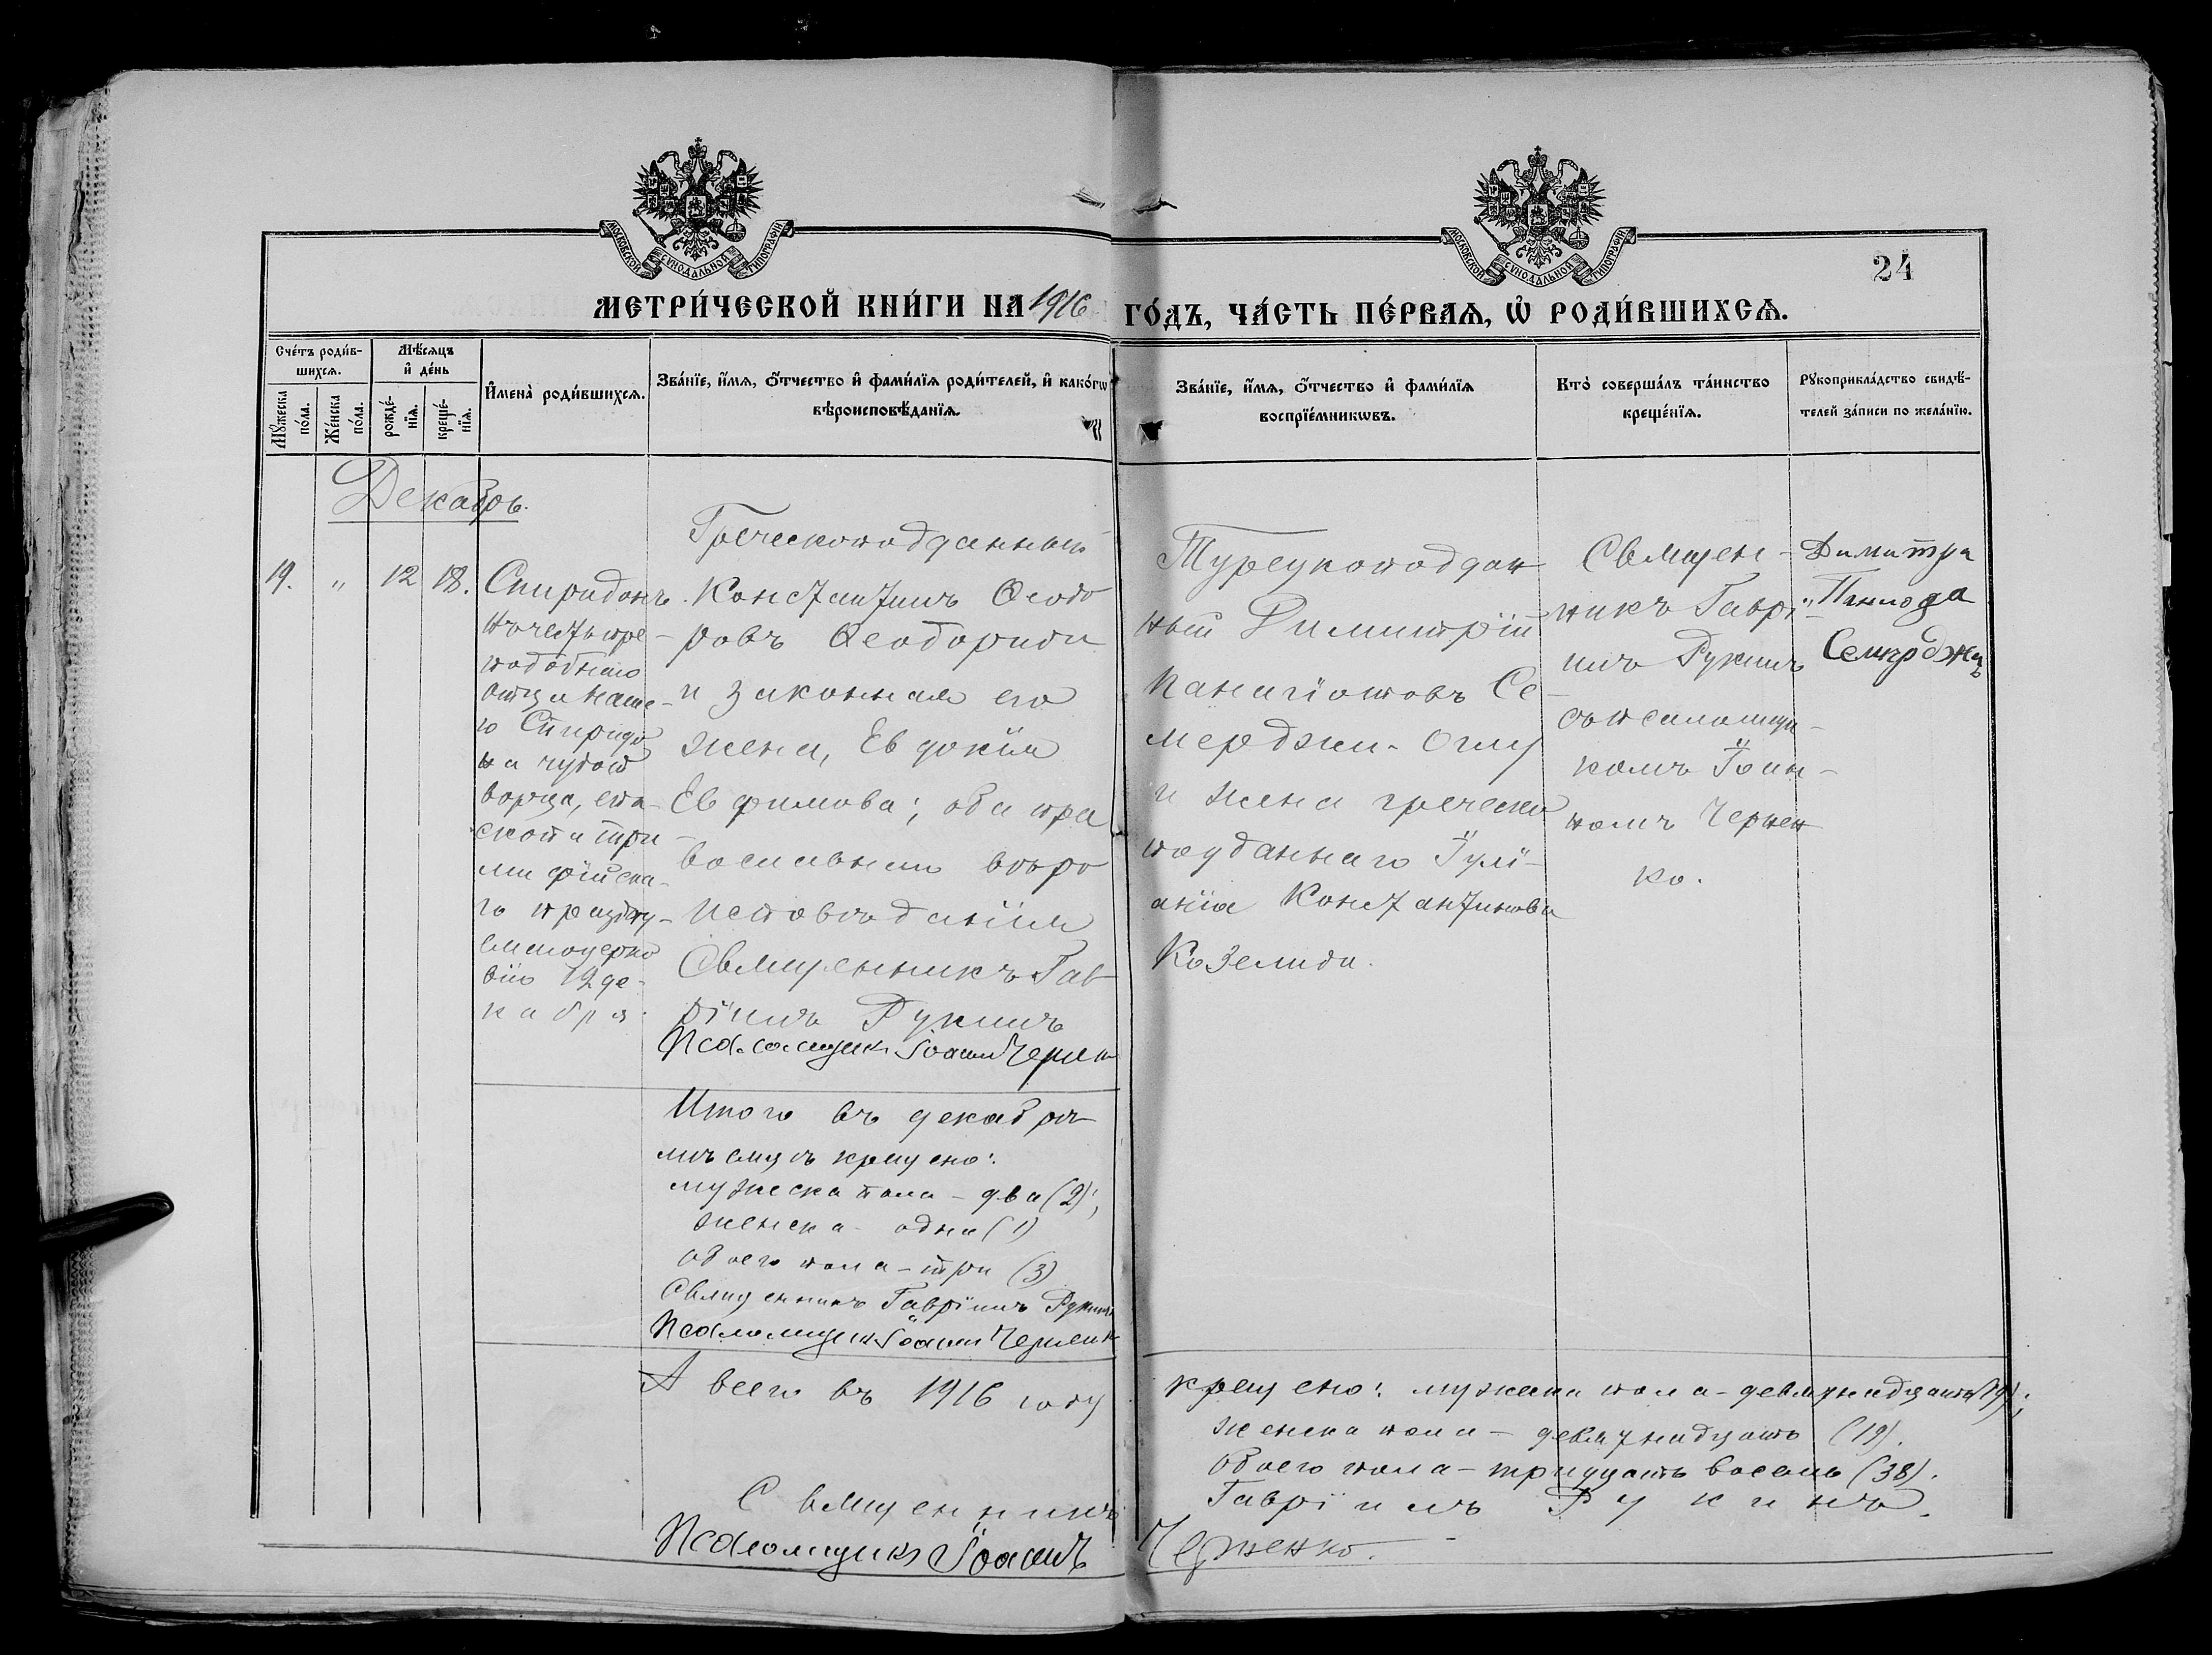 МОСКОВСКОЙ СѴНОДАЛЬНОЙ ТИПОГРАФІИ
МОСКОВСКОЙ СѴНОДАЛЬНОЙ ТИПОГРАФІИ
24
МЕТРИ́ЧЕСКОЙ КНИ́ГИ НА 1916 ГО́ДЪ, ЧА́СТЬ ПЕ́РВАѦ, Ѽ РОДИ́ВШИХСѦ.
Сче́тъ роди́в-
шихсѧ.
Мꙋ́жеска
по́ла.
Же́нска
по́ла.
Мѣ́сѧцъ
и҆ де́нь
рожде́-
нїѧ.
креще́-
нїѧ.
И҆мена̀ роди́вшихсѧ.
Зва́нїе, и҆́мѧ, ѻ҆́тчество и҆ фами́лїѧ роди́телей, и҆ како́гѡ
вѣроисповѣ́данїѧ.
Зва́нїе, и҆́мѧ, ѻ҆́тчество и҆ фами́лїѧ
воспрїе́мникѡвъ.
Кто̀ соверша́лъ та́инство
креще́нїѧ.
Рꙋкоприкла́дство свидѣ́-
телей за́писи по жела́нїю.
Декабрь.
19. " 12 18.
Спиридонъ
въ честь пре-
подобнаго
отца наше-
го Спиридо
на чудот
ворца, епи-
скопа три-
мифійска-
го праздну-
емаго церко
вію 12 де-
кабря.
Греческоподданный
Константинъ Ѳеодо
ровъ Ѳеодориди
и законная его
жена, Евдокія
Евфимова; оба пра
вославнаго вѣро
исповѣданія
Священникъ Гав
ріилъ Рукинъ
Псаломщикъ Іоаннъ Черненко
Турецкоподдан
ный Димитрій
Панагіотовъ Се-
мерджи-Оглу
и жена греческо
подданнаго Іулі-
анія Константинова
Козелиди.
Священ-
никъ Гаврі-
илъ Рукинъ
съ псаломщи-
комъ Іоан-
номъ Чернен
ко.
Димитри
Семерджи
Итого въ декабрѣ
мѣсяцѣ крещено:
мужеска пола - два (2);
женска - одна (1)
обоего пола - три (3)
Священникъ Гавріилъ Рукинъ
Псаломщикъ Іоаннъ Черненко
А всего въ 1916 году крещено: мужеска пола - девятнадцать (19);
женска пола - девятнадцать (19).
обоего пола - тридцать восемь (38).
Священникъ Гавріилъ Рукинъ.
Псаломщикъ Іоаннъ Черненко.